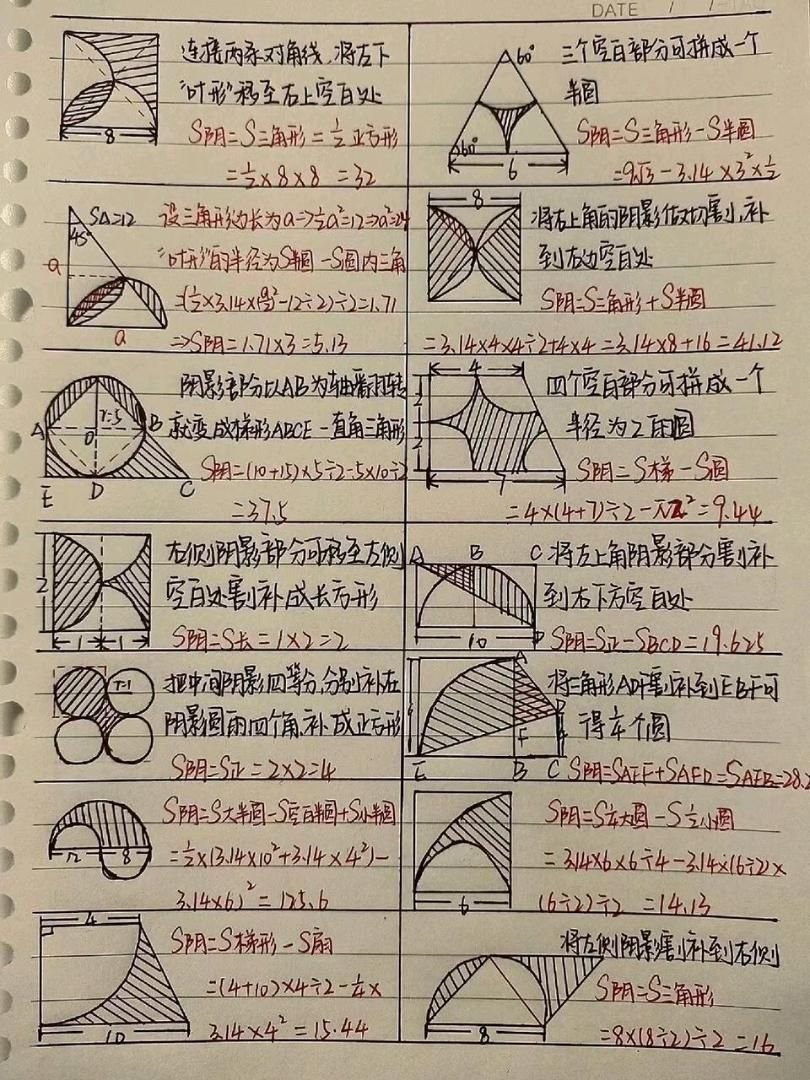 DATE / /
连接两条对角线,将左下
"叶形"移至右上空白处
S阴=S三角形=½正方形
=½×8×8 =32
8
60°
60°
6
三个空白部分可拼成一个
半圆
S阴=S三角形-S半圆
=9√3-3.14×3²×½
S△=12
45°
a
a
设三角形边长为a→½a²=12→a²=24
"叶形"的半径为S半圆-S圆内三角
÷2)÷2=1.71
⇒S阴=1.71×3=5.13
8
将右上角的阴影做切割,补
到右边空白处
S阴=S三角形+S半圆
=3.14×4×4÷2+4×4=3.14×8+16=41.12
A
B
O
r=5
E
D
C
阴影部分以AB为轴翻转
就变成梯形ABCE-直角三角形
S阴=(10+15)×5÷2-5×10÷2
=37.5
4
2
2
7
四个空白部分可拼成一个
半径为2的圆
S阴=S梯-S圆
=4×(4+7)÷2-π2²=9.44
2
1
1
右侧阴影部分可移至左侧
空白处割补成长方形
S阴=S长=1×2=2
A
B
C
D
10
将左上角阴影部分割补
到右下方空白处
S阴=S正-SBCD=19.625
r=1
把中间阴影四等分,分别补在
阴影圆的四个角,补成正方形
S阴=S正=2×2=4
A
D
F
E
B
C
将三角形ADF割补到EBF可
得¼个圆
S阴=SAEF+SAFD=SAEB=28.2
12
8
S阴=S大半圆-S空白半圆+S小半圆
=½×(3.14×10²+3.14×4²)-
3.14×6)²=125.6
6
S阴=S¼大圆-S½小圆
=3.14×6×6÷4-3.14×(6÷2)×
(6÷2)÷2 =14.13
4
10
S阴=S梯形-S扇
=(4+10)×4÷2-¼×
3.14×4²=15.44
8
将左侧阴影割补到右侧
S阴=S三角形
=8×(8÷2)÷2 =16